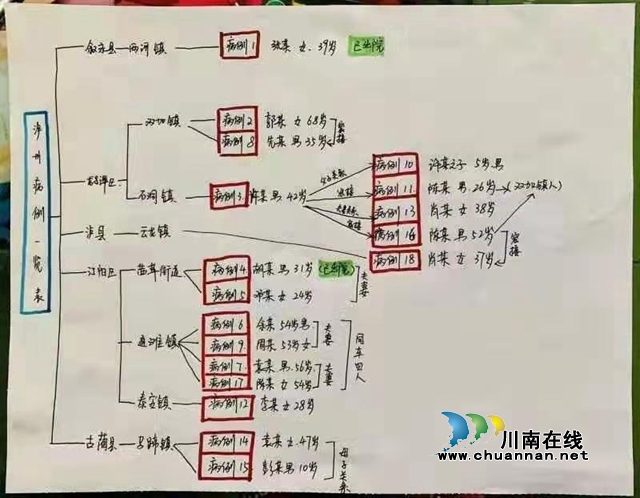 泸州病例一览表
叙永县 两河镇 病例1 张某 女 39岁 已出院
龙马潭区
双加镇 病例2 郭某 女 68岁
病例8 先某 男 35岁
密接
石洞镇 病例3 许某 男 42岁
父子关系
密接
夫妻关系
密接
病例10 许某之子 5岁 男
病例11 陈某 男 26岁 (双加镇人)
病例13 肖某 女 38岁
病例16 陈某 男 52岁
密接
泸县 云龙镇 病例18 肖某 女 37岁
江阳区
蓝田街道 病例4 胡某 男 31岁 (已出院)
病例5 邓某 女 24岁
夫妻
通滩镇 病例6 余某 54岁 男
病例9 周某 53岁 女
夫妻
病例7 袁某 男 56岁
病例17 陈某 女 54岁
夫妻
同车四人
泰安镇 病例12 李某 女 28岁
古蔺县 马蹄镇 病例14 袁某 女 47岁
病例15 彭某 男 10岁
母子关系
川南在线
www.chuannan.net